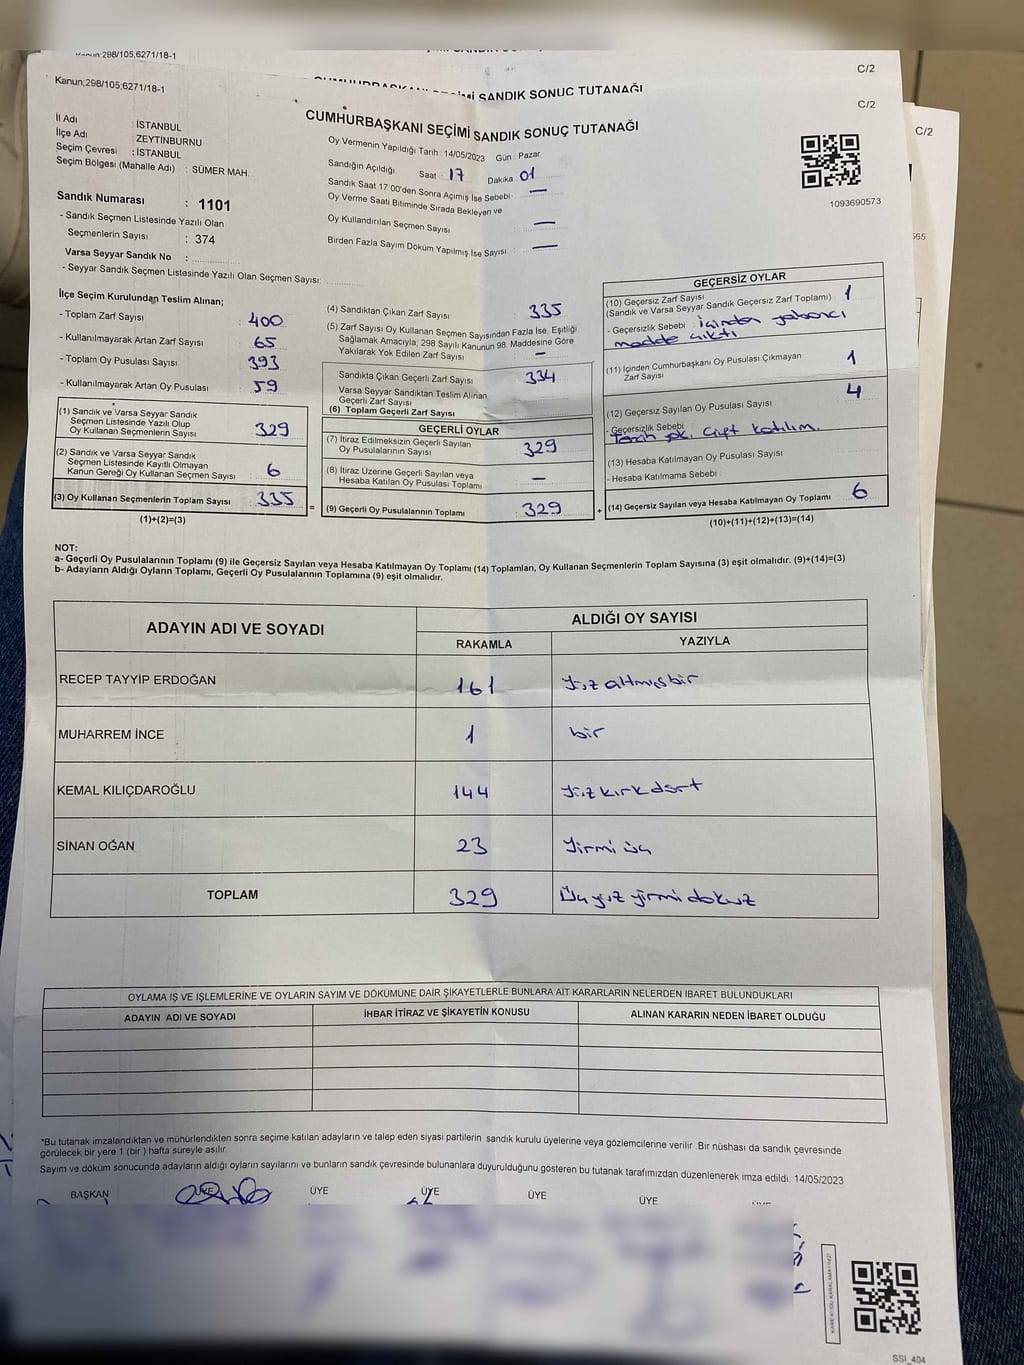 Kanun;298/105;6271/18-1
CUMHURBAŞKANI SEÇİMİ SANDIK SONUÇ TUTANAĞI
C/2
Kanun;298/105;6271/18-1
C/2
C/2
CUMHURBAŞKANI SEÇİMİ SANDIK SONUÇ TUTANAĞI
İl Adı : İSTANBUL
İlçe Adı : ZEYTİNBURNU
Seçim Çevresi : İSTANBUL
Seçim Bölgesi (Mahalle Adı) : SÜMER MAH.
Oy Vermenin Yapıldığı Tarih : 14/05/2023 Gün : Pazar
Sandığın Açıldığı Saat 17 Dakika 01
Sandık Saat 17:00'den Sonra Açımış İse Sebebi : —
Oy Verme Saati Bitiminde Sırada Bekleyen ve
Oy Kullandırılan Seçmen Sayısı : —
Birden Fazla Sayım Döküm Yapılmış İse Sayısı : —
1093690573
565
Sandık Numarası : 1101
- Sandık Seçmen Listesinde Yazılı Olan
Seçmenlerin Sayısı : 374
Varsa Seyyar Sandık No :
- Seyyar Sandık Seçmen Listesinde Yazılı Olan Seçmen Sayısı:
İlçe Seçim Kurulundan Teslim Alınan;
- Toplam Zarf Sayısı : 400
- Kullanılmayarak Artan Zarf Sayısı : 65
- Toplam Oy Pusulası Sayısı : 393
- Kullanılmayarak Artan Oy Pusulası : 59
(1) Sandık ve Varsa Seyyar Sandık
Seçmen Listesinde Yazılı Olup
Oy Kullanan Seçmenlerin Sayısı 329
(2) Sandık ve Varsa Seyyar Sandık
Seçmen Listesinde Kayıtlı Olmayan
Kanun Gereği Oy Kullanan Seçmen Sayısı 6
(3) Oy Kullanan Seçmenlerin Toplam Sayısı 335
(1)+(2)=(3)
(4) Sandıktan Çıkan Zarf Sayısı : 335
(5) Zarf Sayısı Oy Kullanan Seçmen Sayısından Fazla İse, Eşitliği
Sağlamak Amacıyla; 298 Sayılı Kanunun 98. Maddesine Göre
Yakılarak Yok Edilen Zarf Sayısı : —
Sandıkta Çıkan Geçerli Zarf Sayısı : 334
Varsa Seyyar Sandıktan Teslim Alınan
Geçerli Zarf Sayısı
(6) Toplam Geçerli Zarf Sayısı
GEÇERLİ OYLAR
(7) İtiraz Edilmeksizin Geçerli Sayılan
Oy Pusulalarının Sayısı 329
(8) İtiraz Üzerine Geçerli Sayılan veya
Hesaba Katılan Oy Pusulası Toplamı —
= (9) Geçerli Oy Pusulalarının Toplamı 329
GEÇERSİZ OYLAR
(10) Geçersiz Zarf Sayısı 1
(Sandık ve Varsa Seyyar Sandık Geçersiz Zarf Toplamı)
- Geçersizlik Sebebi : içinden yabancı
madde çıktı
(11) İçinden Cumhurbaşkanı Oy Pusulası Çıkmayan
Zarf Sayısı 1
(12) Geçersiz Sayılan Oy Pusulası Sayısı 4
- Geçersizlik Sebebi
Tercih yok. Çift katılım.
(13) Hesaba Katılmayan Oy Pusulası Sayısı
- Hesaba Katılmama Sebebi
+ (14) Geçersiz Sayılan veya Hesaba Katılmayan Oy Toplamı 6
(10)+(11)+(12)+(13)=(14)
NOT:
a- Geçerli Oy Pusulalarının Toplamı (9) ile Geçersiz Sayılan veya Hesaba Katılmayan Oy Toplamı (14) Toplamları, Oy Kullanan Seçmenlerin Toplam Sayısına (3) eşit olmalıdır. (9)+(14)=(3)
b- Adayların Aldığı Oyların Toplamı, Geçerli Oy Pusulalarının Toplamına (9) eşit olmalıdır.
ADAYIN ADI VE SOYADI ALDIĞI OY SAYISI
RAKAMLA YAZIYLA
RECEP TAYYİP ERDOĞAN 161 Yüz altmışbir
MUHARREM İNCE 1 bir
KEMAL KILIÇDAROĞLU 144 Yüz kırk dört
SİNAN OĞAN 23 Yirmi üç
TOPLAM 329 Üç yüz yirmi dokuz
OYLAMA İŞ VE İŞLEMLERİNE VE OYLARIN SAYIM VE DÖKÜMÜNE DAİR ŞİKAYETLERLE BUNLARA AİT KARARLARIN NELERDEN İBARET BULUNDUKLARI
ADAYIN ADI VE SOYADI İHBAR İTİRAZ VE ŞİKAYETİN KONUSU ALINAN KARARIN NEDEN İBARET OLDUĞU
*Bu tutanak imzalandıktan ve mühürlendikten sonra seçime katılan adayların ve talep eden siyasi partilerin sandık kurulu üyelerine veya gözlemcilerine verilir. Bir nüshası da sandık çevresinde
görülecek bir yere 1 (bir ) hafta süreyle asılır.
Sayım ve döküm sonucunda adayların aldığı oyların sayılarını ve bunların sandık çevresinde bulunanlara duyurulduğunu gösteren bu tutanak tarafımızdan düzenlenerek imza edildi. 14/05/2023
BAŞKAN ÜYE ÜYE ÜYE ÜYE ÜYE
SSI_404